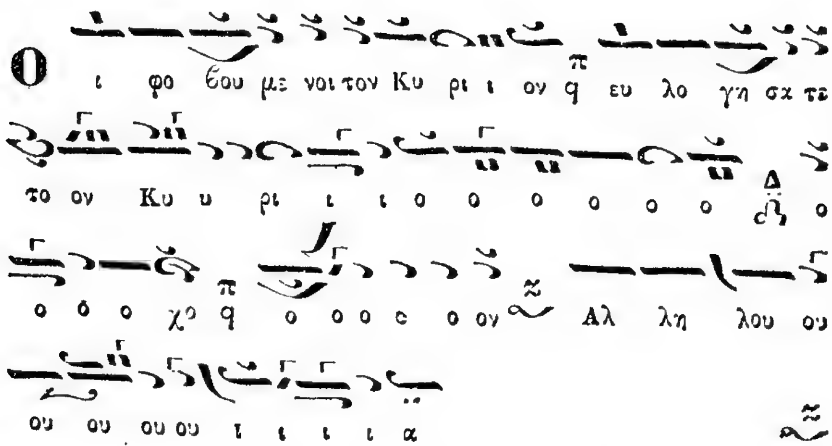 Ο ι φο βου με νοι τον Κυ ρι ι ον π q ευ λο γη σα τε
το ον Κυ υ ρι ι ι ο ο ο ο ο ο ο Δ ο
ο δ ο χο π q ο ο ο ο ο ον Αλ λη λου ου
ου ου ου ου ι ι ι ι α